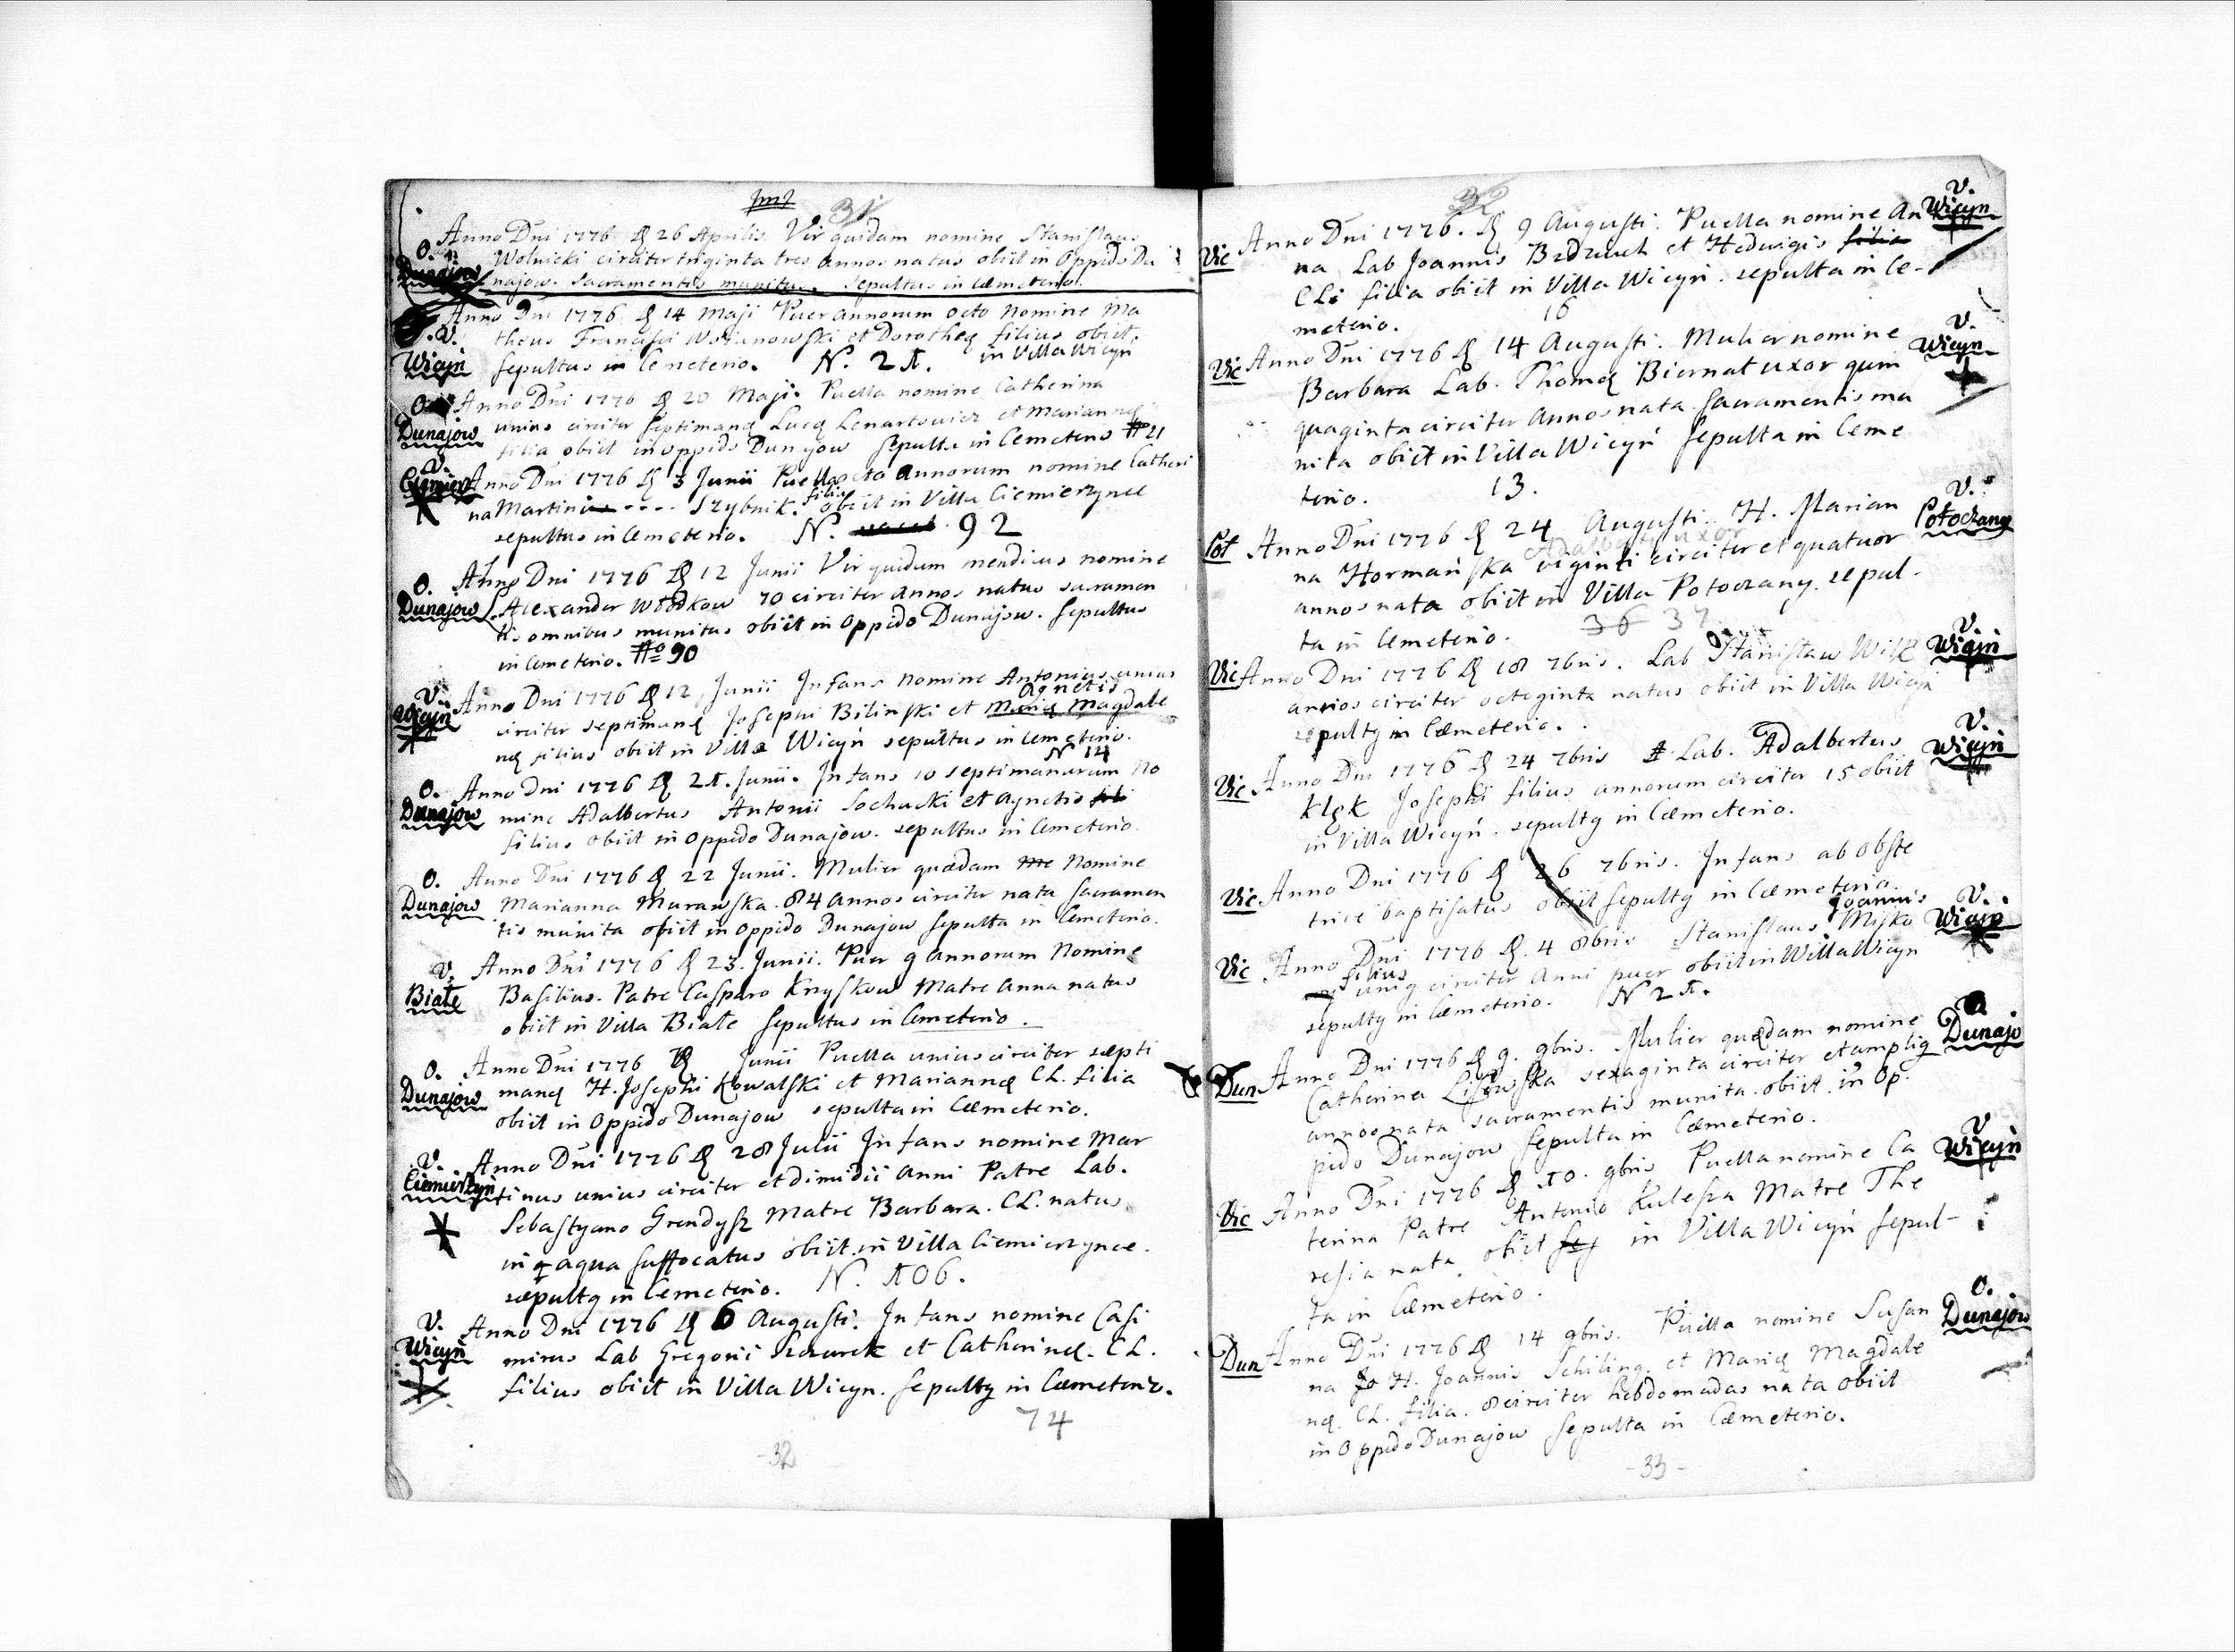 31
O.
Dunajow
Anno Dni 1776 d 26 Aprilis. Vir quidam nomine Stanislaus
Wolnicki circiter triginta tres annos natus obiit in Oppido Du
najow. Sacramentis munitus. Sepultus in Cæmeterio.
V.
Wicyń
Anno Dni 1776 d 14 Maji Puer annorum octo nomine Ma
theus Francisci et Dorotheę filius obiit
in Villa Wicyń
sepultus in Cemeterio. N. 21.
O.
Dunajow
Anno Dni 1776 d 20 Maji. Puella nomine Catherina
unius circiter septimanę Lucę Lenartowicz et Mariannę
filia obiit in oppido Dunajow Sepulta in Cemeterio # 21
V.
Anno Dni 1776 d 3 Junii Puella octo annorum nomine Catheri
filia
na Martini ---- Szybnik. obiit in Villa Ciemierzynce
sepultus in Cemeterio. N. 92
O.
Dunajow
Anno Dni 1776 d 12 Junii Vir quidam mendicus nomine
Alexander Wodkow 70 circiter annos natus sacramen
tis omnibus munitus obiit in Oppido Dunajow. Sepultus
in Cemeterio. No 90
V.
Wicyń
Anno Dni 1776 d 12 Junii Infans nomine Antonius unius
Agnetis
circiter septimanę Josephi Bilinski et Marię Magdale
nę filius obiit in Villa Wicyń sepultus in Cemeterio.
N 14
O.
Dunajow
Anno Dni 1776 d 21. Junii. Infans 10 septimanarum no
mine Adalbertus Antonii Sochacki et Agnetis fili
filius obiit in Oppido Dunajow. sepultus in Cemeterio.
O.
Dunajow
Anno Dni 1776 d 22 Junii. Mulier quædam me nomine
Marianna Murawska. 84 annos circiter nata sacramen
tis munita obiit in Oppido Dunajow sepulta in Cemeterio.
V.
Białe
Anno Dni 1776 d 23. Junii. Puer 9 annorum Nomine
Basilius. Patre Casparo Knyskow Matre Anna natus
obiit in Villa Białe sepultus in Cemeterio.
O.
Dunajow
Anno Dni 1776 d Junii Puella unius circiter septi
manę H. Josephi Kowalski et Mariannę CL. filia
obiit in Oppido Dunajow sepulta in Cæmeterio.
V.
Ciemierzyn
Anno Dni 1776 d 28 Julii Infans nomine Mar
tinus unius circiter et dimidii Anni Patre Lab.
Sebastyano Grendysz Matre Barbara. CL. natus
in aqua suffocatus obiit in Villa Ciemierzynce.
sepultq in Cemeterio. N. 106.
V.
Wicyń
Anno Dni 1776 d 6 Augusti. Infans nomine Casi
mirus Lab Gregorii Szczurek et Catherinę. CL.
filius obiit in Villa Wicyn. sepultq in Cæmeterio.
74
-32
32
Vic
V.
Wicyn
Anno Dni 1776. d 9 Augusti. Puella nomine An
na Lab Joannis Bzdziuch et Hedwigis filia
CLi filia obiit in Villa Wicyń. sepulta in Ce-
meterio. 16
Vic
V.
Wicyn
Anno Dni 1776 d 14 Augusti. Mulier nomine
Barbara Lab. Thomę Biernat uxor quin
quaginta circiter annos nata Sacramentis mu
nita obiit in Villa Wicyń sepulta in Ceme
terio. 13.
Pot
V.
Potoczany
Anno Dni 1776 d 24 Augusti. H. Marian
Adalberti uxor
na Hormańska viginti circiter et quatuor
annos nata obiit in Villa Potoczany. sepul-
ta in Cemeterio. 36 37
Vic
V.
Wicyń
Anno Dni 1776 d 18 7bris. Lab Stanisław Wilk
annos circiter octoginta natus obiit in Villa Wicyń
sepultq in Cæmeterio.
Vic
V.
Wicyń
Anno Dni 1776 d 24 7bris Lab. Adalbertus
Klęk Josephi filius annorum circiter 15 obiit
in Villa Wicyń. sepultq in Cæmeterio.
Vic
Anno Dni 1776 d 26 7bris. Infans ab obste
trice baptisatus obiit sepultq in Cæmeterio.
Vic
V.
Wicyn
Joannis
Anno Dni 1776 d. 4 8bris Stanislaus Misko
filius
uniq circiter Anni puer obiit in Villa Wicyn
sepultq in Cæmeterio. N 21.
Dun
Dunajo
Anno Dni 1776 d 9. 9bris. Mulier quædam nomine
Catherina Lisowska sexaginta circiter et ampliq
annos nata sacramentis munita. obiit in Op.
pido Dunajow sepulta in Cæmeterio.
Vic
V
Wicyń
Anno Dni 1776 d 10. 9bris Puella nomine Ca
terina Patre Antonio Kulesza Matre The
resia nata obiit in Villa Wicyń sepul-
ta in Cæmeterio.
Dun
O.
Dunajow
Anno Dni 1776 d 14 9bris. Puella nomine Susan
na Jo H. Joannis Schiling et Marię Magdale
nę. CL. filia. 8 circiter hebdomadas nata obiit
in Oppido Dunajow sepulta in Cæmeterio.
-33-